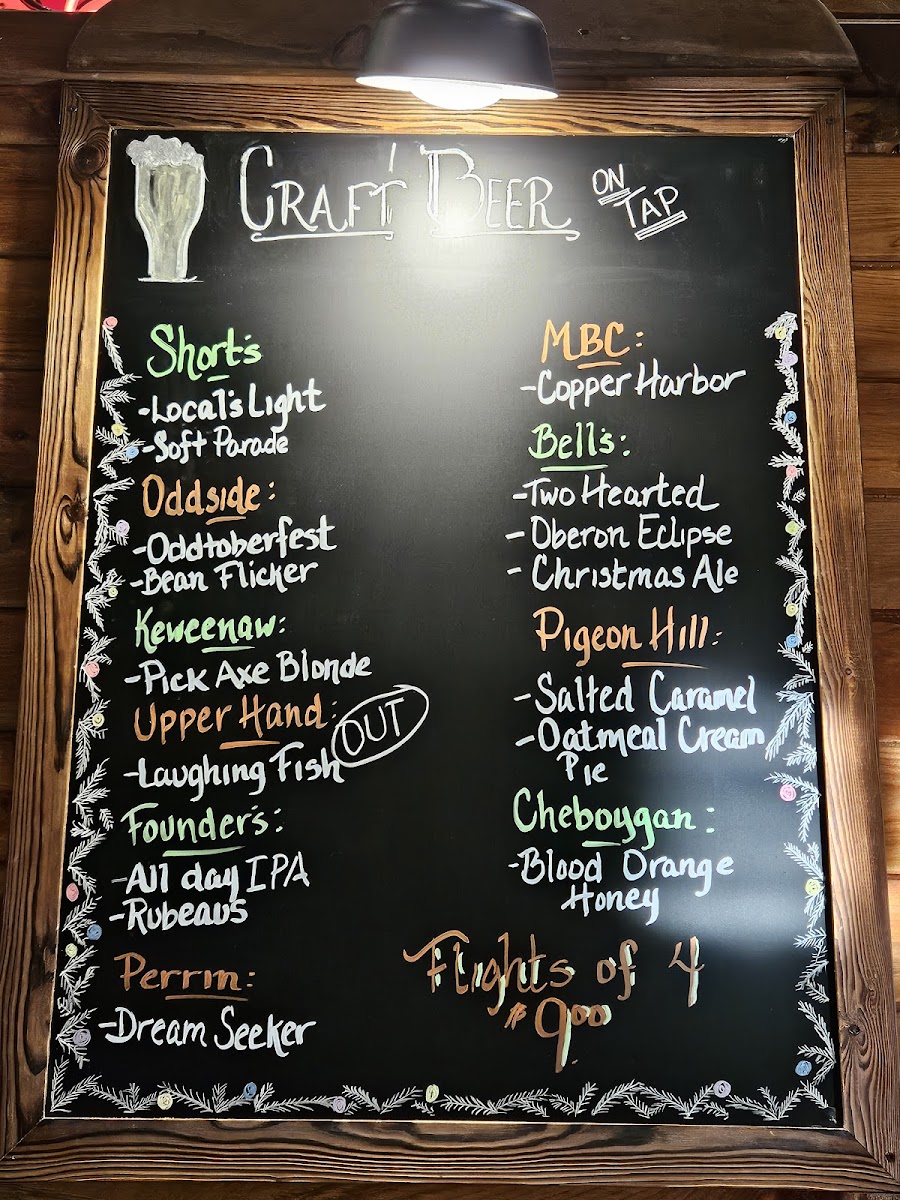 CRAFT BEER ON TAP
Short's
-Local's Light
-Soft Parade
Oddside:
-Oddtoberfest
-Bean Flicker
Keweenaw:
-Pick Axe Blonde
Upper Hand:
OUT
-Laughing Fish
Founder's:
-All day IPA
-Rubeaus
Perrin:
-Dream Seeker
MBC:
-Copper Harbor
Bell's:
-Two Hearted
-Oberon Eclipse
-Christmas Ale
Pigeon Hill:
-Salted Caramel
-Oatmeal Cream
Pie
Cheboygan:
-Blood Orange
Honey
Flights of 4
$9.00